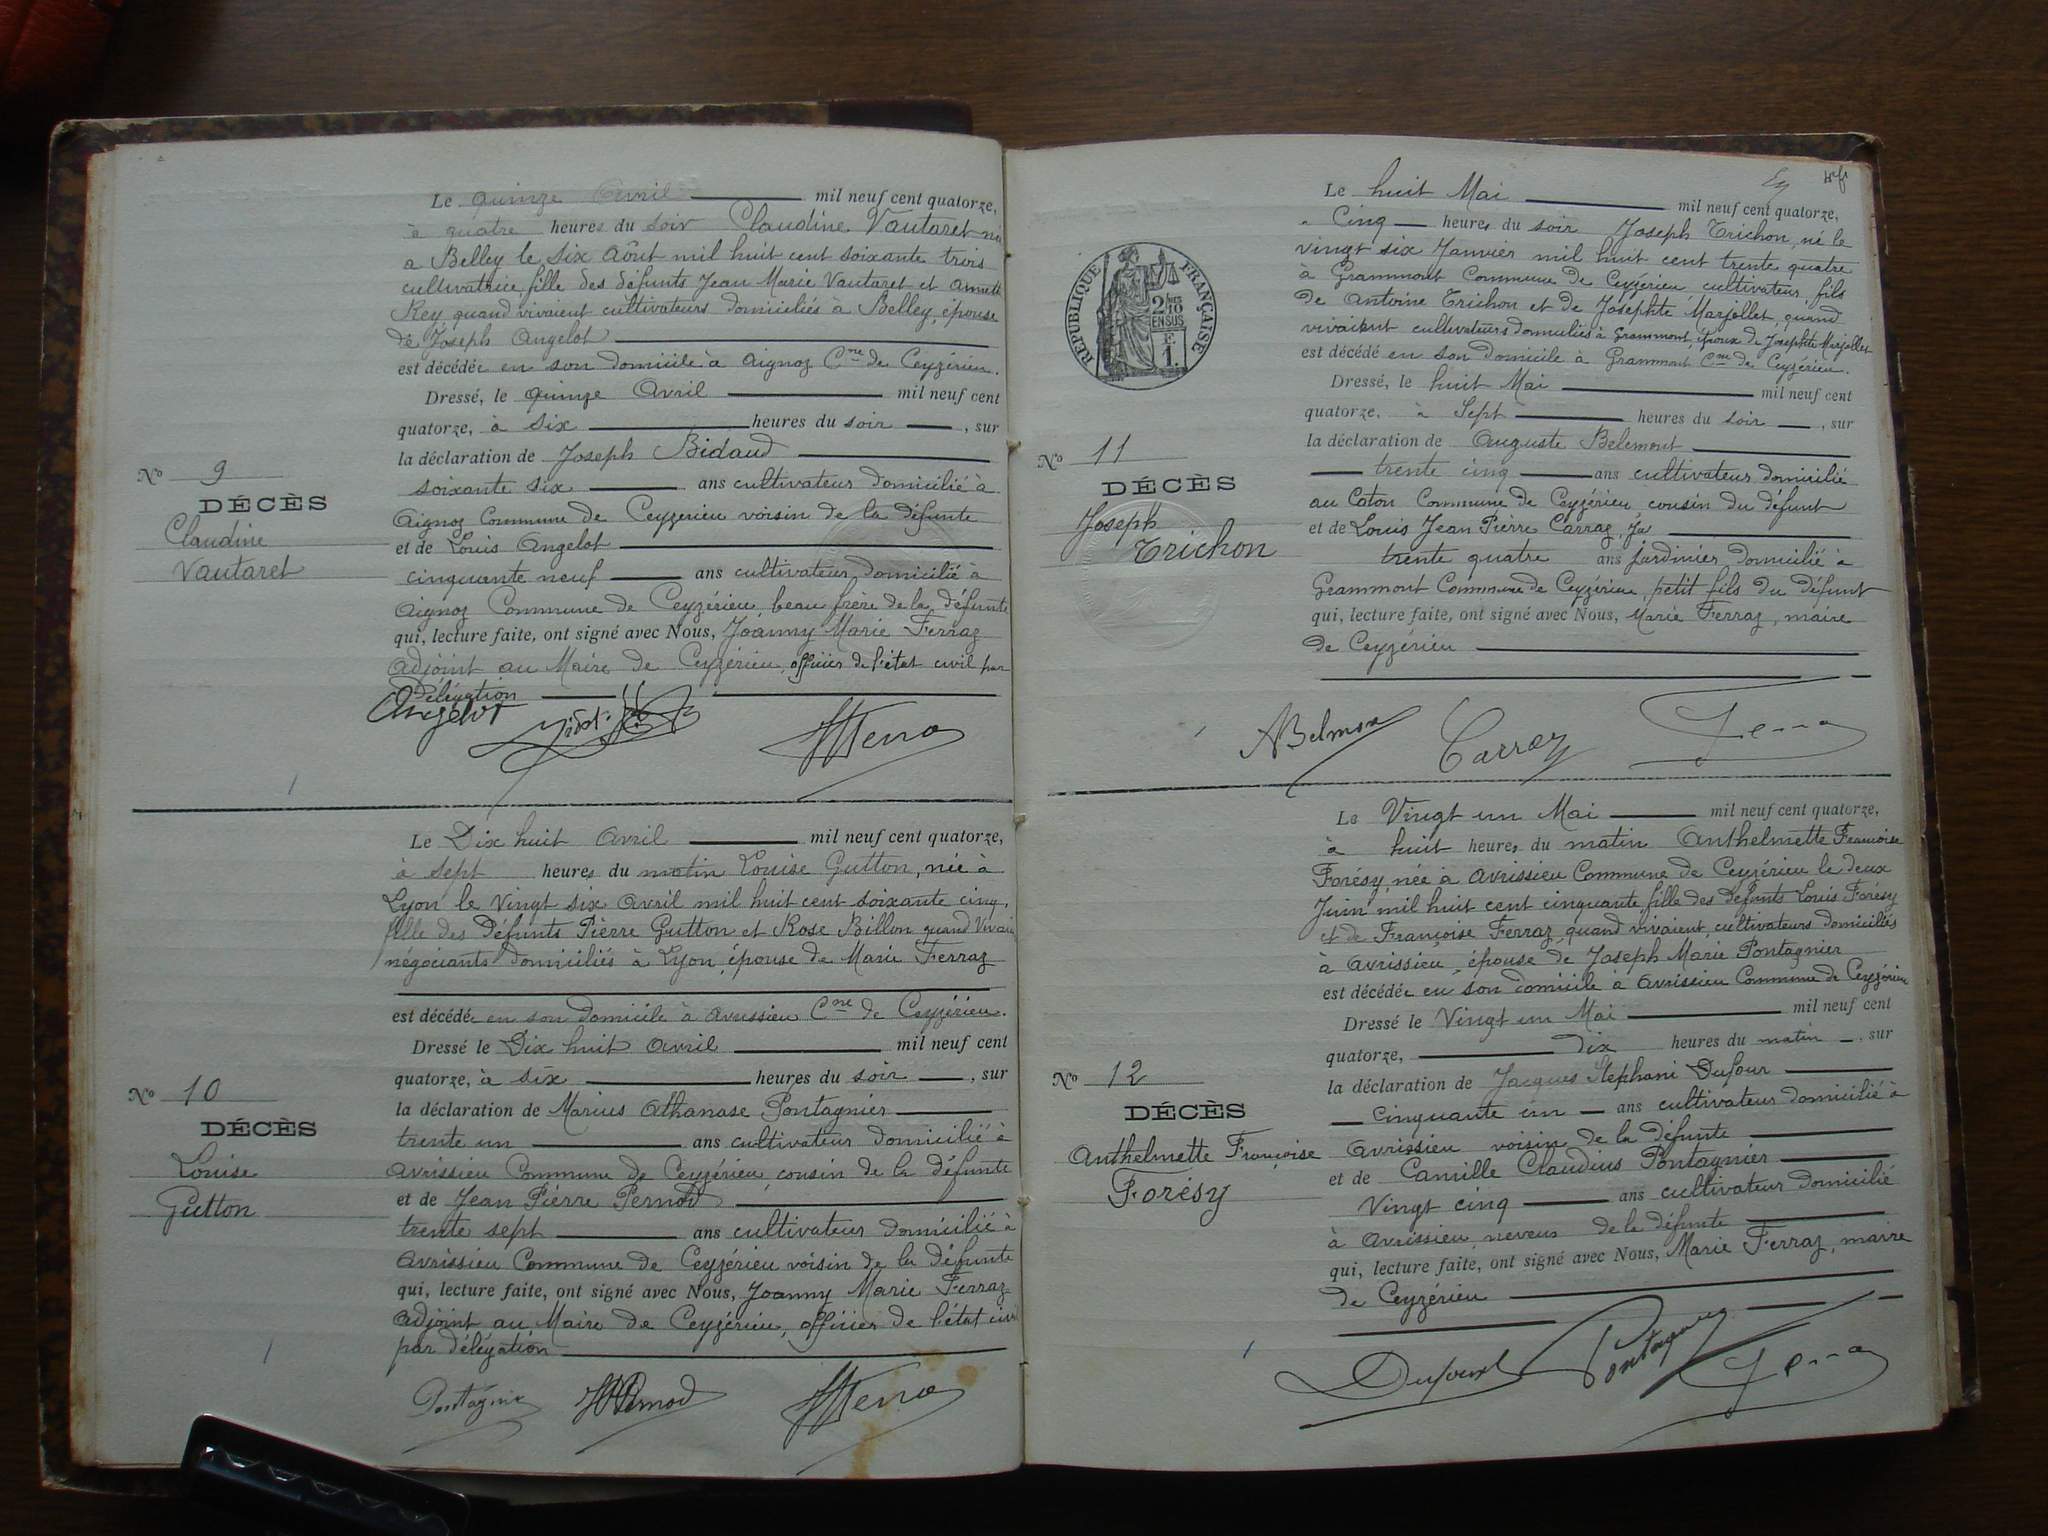 Le quinze Avril mil neuf cent quatorze,
à quatre heures du soir Claudine Vautaret née
a Belley le six Août mil huit cent soixante trois
cultivatrice fille des défunts Jean Marie Vautaret et Annette
Rey quand vivaient cultivateurs domiciliés à Belley, épouse
de Joseph Angelot
est décédée en son domicile à Aignoz Cne de Ceyzérieu.
Dressé, le quinze Avril mil neuf cent
quatorze, à six heures du soir, sur
la déclaration de Joseph Bidaud
soixante six ans cultivateur domicilié à
Aignoz Commune de Ceyzerieu voisin de la défunte
et de Louis Angelot
cinquante neuf ans cultivateur domicilié à
Aignoz Commune de Ceyzérieu, beau frère de la défunte
qui, lecture faite, ont signé avec Nous, Joanny Marie Ferraz
adjoint au Maire de Ceyzérieu, officier de l'état civil par
Délégation
Angelot
No 9
DÉCÈS
Claudine
Vautaret
Le Dix huit Avril mil neuf cent quatorze,
à sept heures du matin Louise Gutton, née à
Lyon le vingt six Avril mil huit cent soixante cinq,
fille des Défunts Pierre Gutton et Rose Billon quand Vivaient
négociants domiciliés à Lyon, épouse de Marie Ferraz
est décédée en son domicile à Avrissieu Cne de Ceyzérieu.
Dressé le Dix huit Avril mil neuf cent
quatorze, à six heures du soir, sur
la déclaration de Marius Athanase Pontagnier
trente un ans cultivateur domicilié à
Avrissieu Commune de Ceyzérieu, cousin de la défunte
et de Jean Pierre Pernod
trente sept ans cultivateur domicilié à
Avrissieu Commune de Ceyzérieu voisin de la défunte
qui, lecture faite, ont signé avec Nous, Joanny Marie Ferraz
adjoint au Maire de Ceyzérieu, officier de l'état civil
par délégation
Pontagnier Pernod
No 10
DÉCÈS
Louise
Gutton
RÉPUBLIQUE FRANÇAISE
2/10
EN SUS
F
1.
Le huit Mai mil neuf cent quatorze,
Cinq heures du soir Joseph Trichon, né le
vingt six Janvier mil huit cent trente quatre
à Grammont Commune de Ceyzérieu cultivateur, fils
de Antoine Trichon et de Josephte Marjollet, quand
vivaient cultivateurs domiciliés à Grammont, époux de Josephte Marjollet
est décédé en son Domicile à Grammont Cne de Ceyzérieu.
Dressé, le huit Mai mil neuf cent
quatorze, à Sept heures du soir, sur
la déclaration de Auguste Belemont
trente cinq ans cultivateur domicilié
au Coton Commune de Ceyzérieu, cousin du défunt
et de Louis Jean Pierre Carraz
trente quatre ans jardinier domicilié à
Grammont Commune de Ceyzérieu, petit fils du défunt
qui, lecture faite, ont signé avec Nous, Marie Ferraz, maire
de Ceyzérieu
ABelmon Carraz Ferra
No 11
DÉCÈS
Joseph
Trichon
Le Vingt un Mai mil neuf cent quatorze,
à huit heures du matin Anthelmette Françoise
Forésy, née à Avrissieu Commune de Ceyzérieu le deux
Juin mil huit cent cinquante fille des défunts Louis Forésy
et de Françoise Ferraz, quand vivaient, cultivateurs domiciliés
à Avrissieu, épouse de Joseph Marie Pontagnier
est décédée en son domicile à Avrissieu Commune de Ceyzérieu
Dressé le Vingt un Mai mil neuf cent
quatorze, dix heures du matin, sur
la déclaration de Jacques Stephani Dufour
Cinquante un ans cultivateur domicilié à
Avrissieu voisin de la défunte
et de Camille Claudius Pontagnier
Vingt cinq ans cultivateur domicilié
à Avrissieu, neveu de la défunte
qui, lecture faite, ont signé avec Nous, Marie Ferraz, maire
de Ceyzérieu
Dufour Pontagnier Ferra
No 12
DÉCÈS
Anthelmette Françoise
Forésy